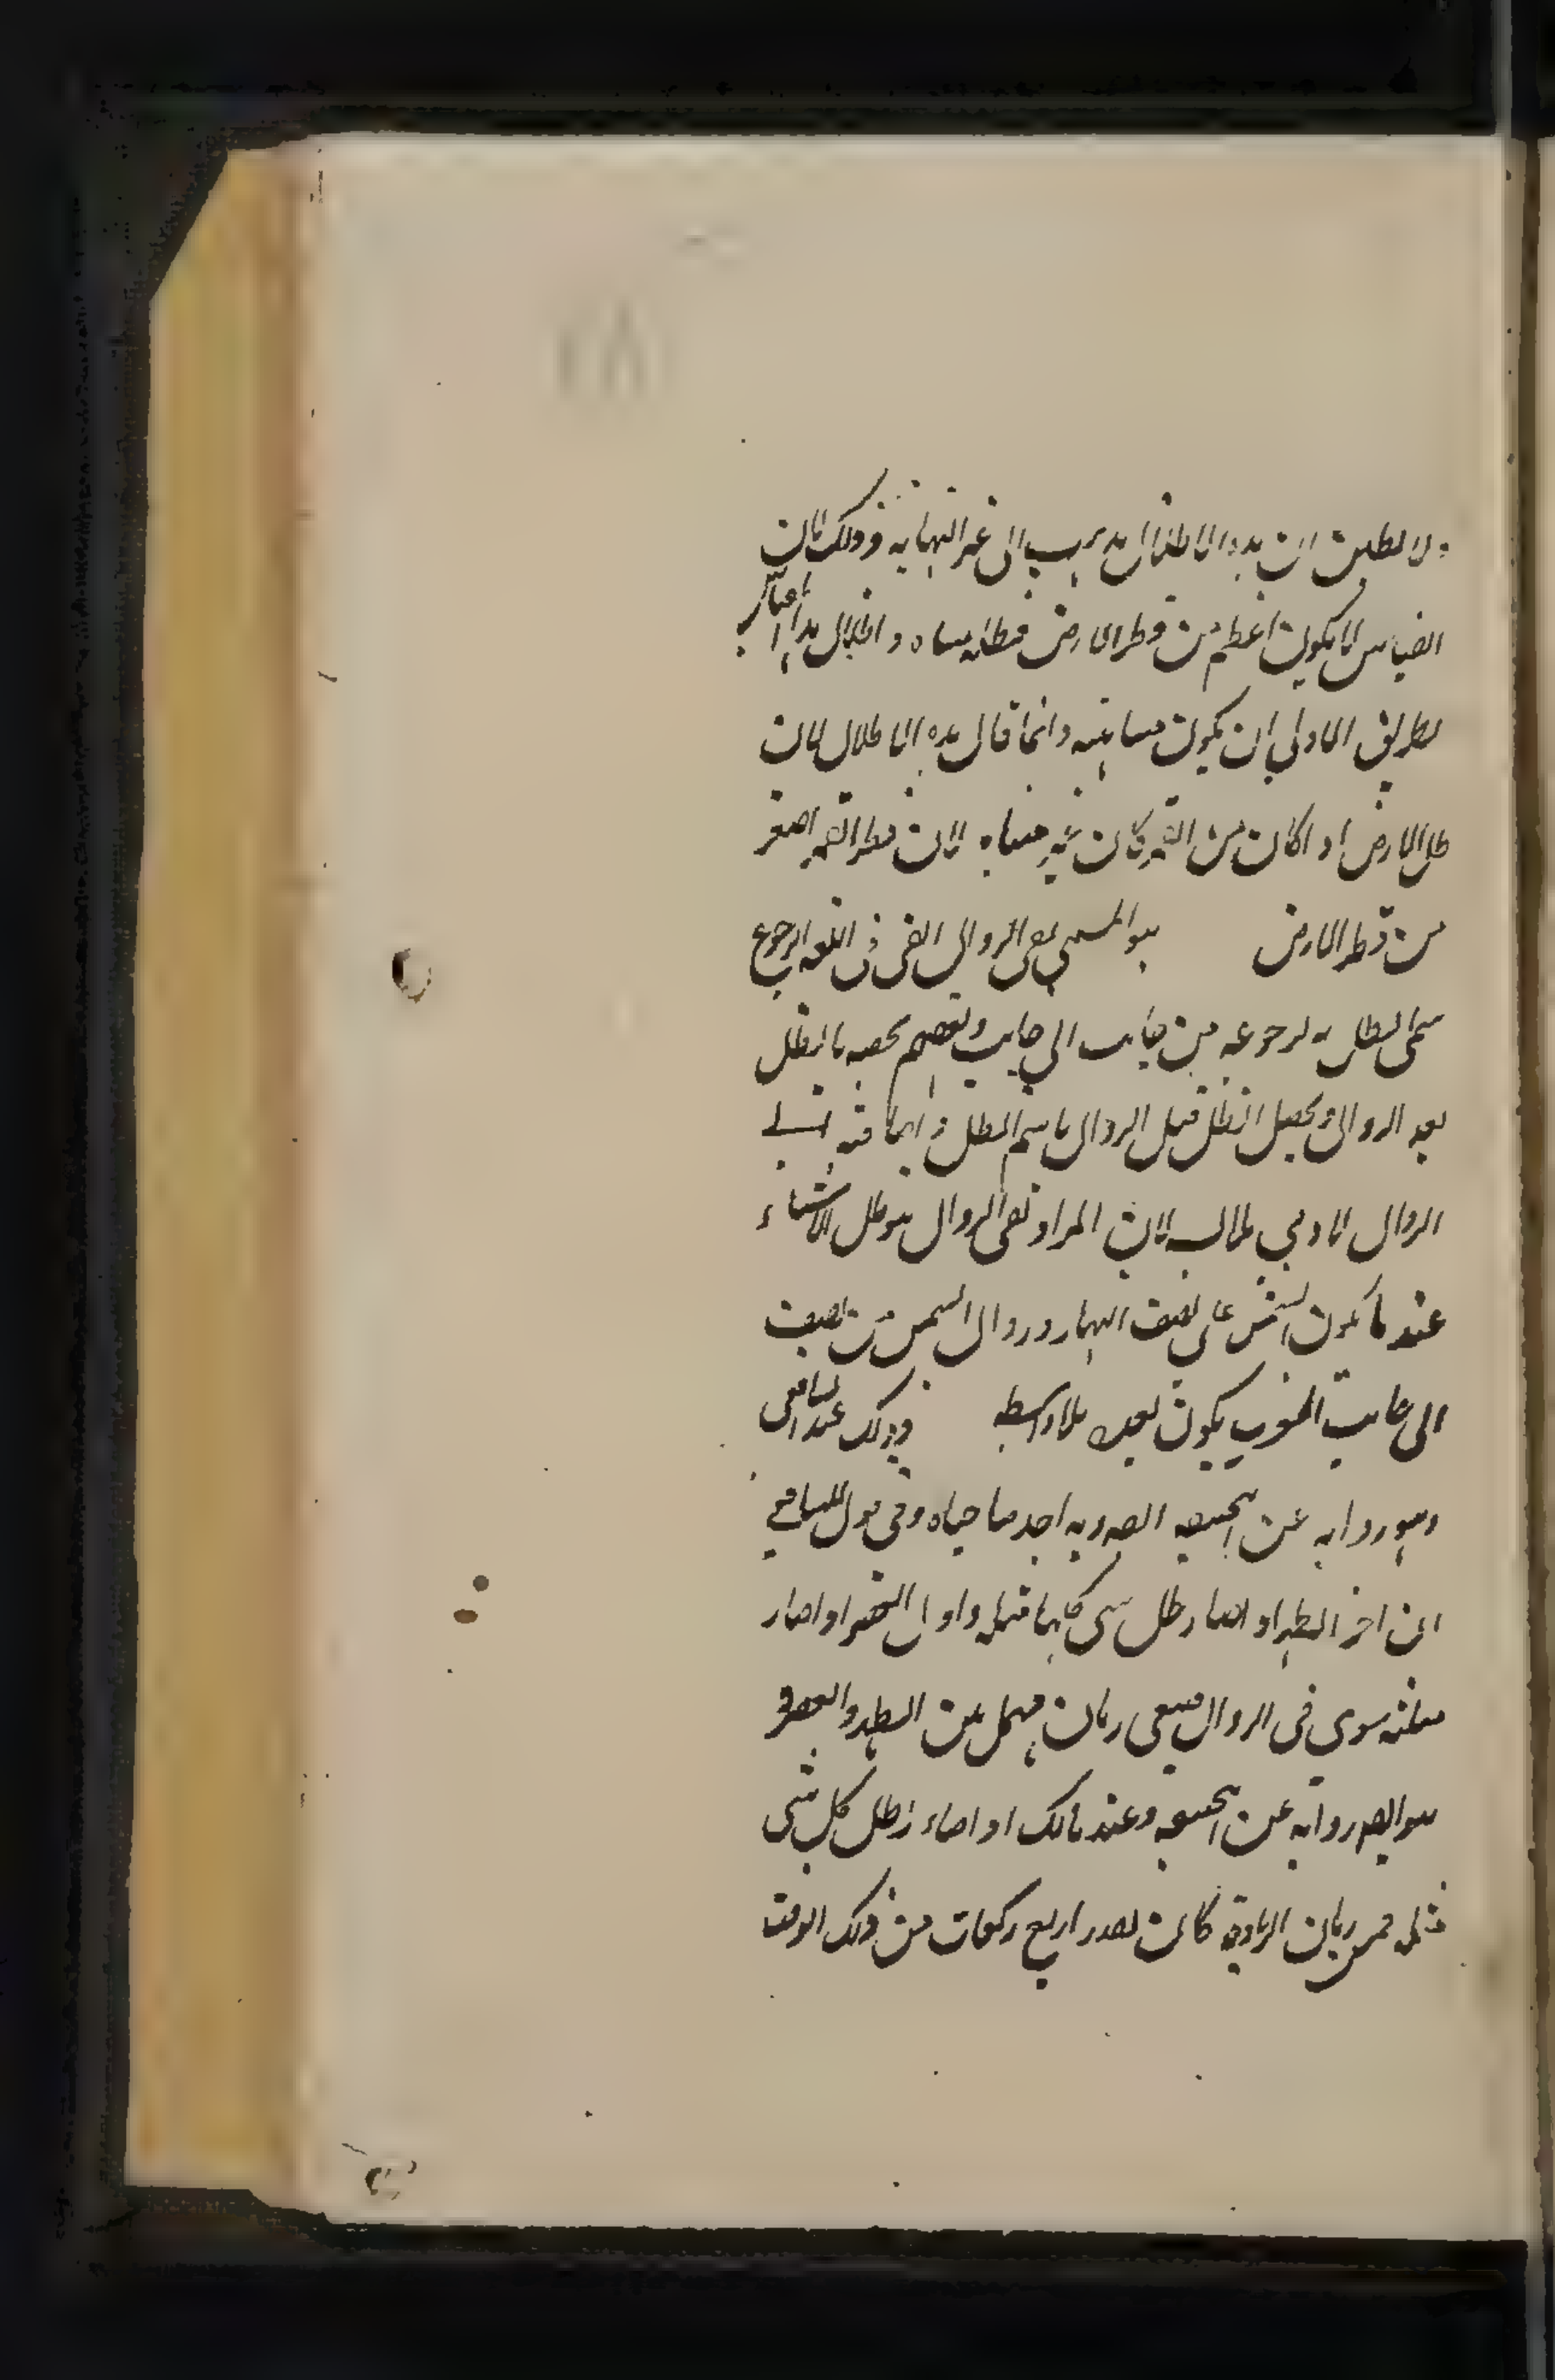 ولا نظن ان هذه الاظلال يذهب الى غير النهاية وذلك لان
المقياس لا يكون اعظم من قطر الارض فظله متناه واظلال هذا
بطريق الاولى ان يكون متناهية وانما قال هذه الاظلال لان
ظل الارض اذا كان من القمر كان غير متناه لان قطر القمر اصغر
من قطر الارض هو المسمى بفي الزوال الفي في اللغة الرجوع
سمى الظل به لرجوعه من جانب الى جانب وبعضهم يخصه بالظل
بعد الزوال ويخص الظل قبل الزوال باسم الظل و
الزوال لادنى لان المراد بفي الزوال هو ظل الاشياء
عند ما يكون الشمس على نصف النهار وزوال الشمس من نصف
الى جانب المغرب يكون بعده بلا واسطه وذلك عند الشافعى
وهو رواية عن ابيحنيفه وبه اخذ صاحباه وفى قول للشافعي
ان اخر الظهر اذا صار ظل شى كانها مثله واول العصر اذا صار
مثليه سوى في الزوال فيبقى زمان مهمل بين الظهر والعصر و
هو ايضا رواية عن ابيحنيفه وعند مالك اذا صار ظل كل شى
مثله فمن زمان الزيادة كان بقدر اربع ركعات من ذلك الوقت